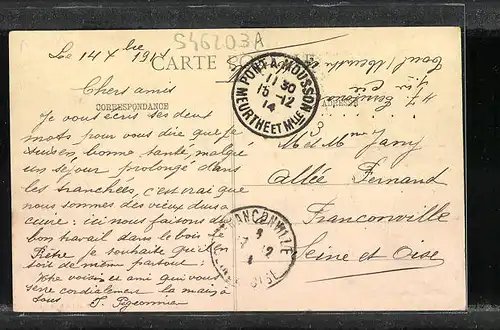 S46203A
Le 14 Xbre 1914
CARTE
Chers amis
CORRESPONDANCE
Je vous écris ses deux
mots pour vous dire que je
suis en bonne santé, malgré
un séjour prolongé dans
les tranchées, c'est vrai que
nous sommes des vieux durs a
cuire: ici nous faisons du
bon travail dans le bois le
Prêtre je souhaite qu'il en
soit de même partout:
Vtre voisin et ami qui vous
serre cordialement la main à
tous
PONT-A-MOUSSON
11 30
15-12
14
MEURTHE ET MLLE
ADRESSE
Mr et Mme Jany
Allée Fernand
Franconville
Seine et Oise
FRANCONVILLE
12
OISE